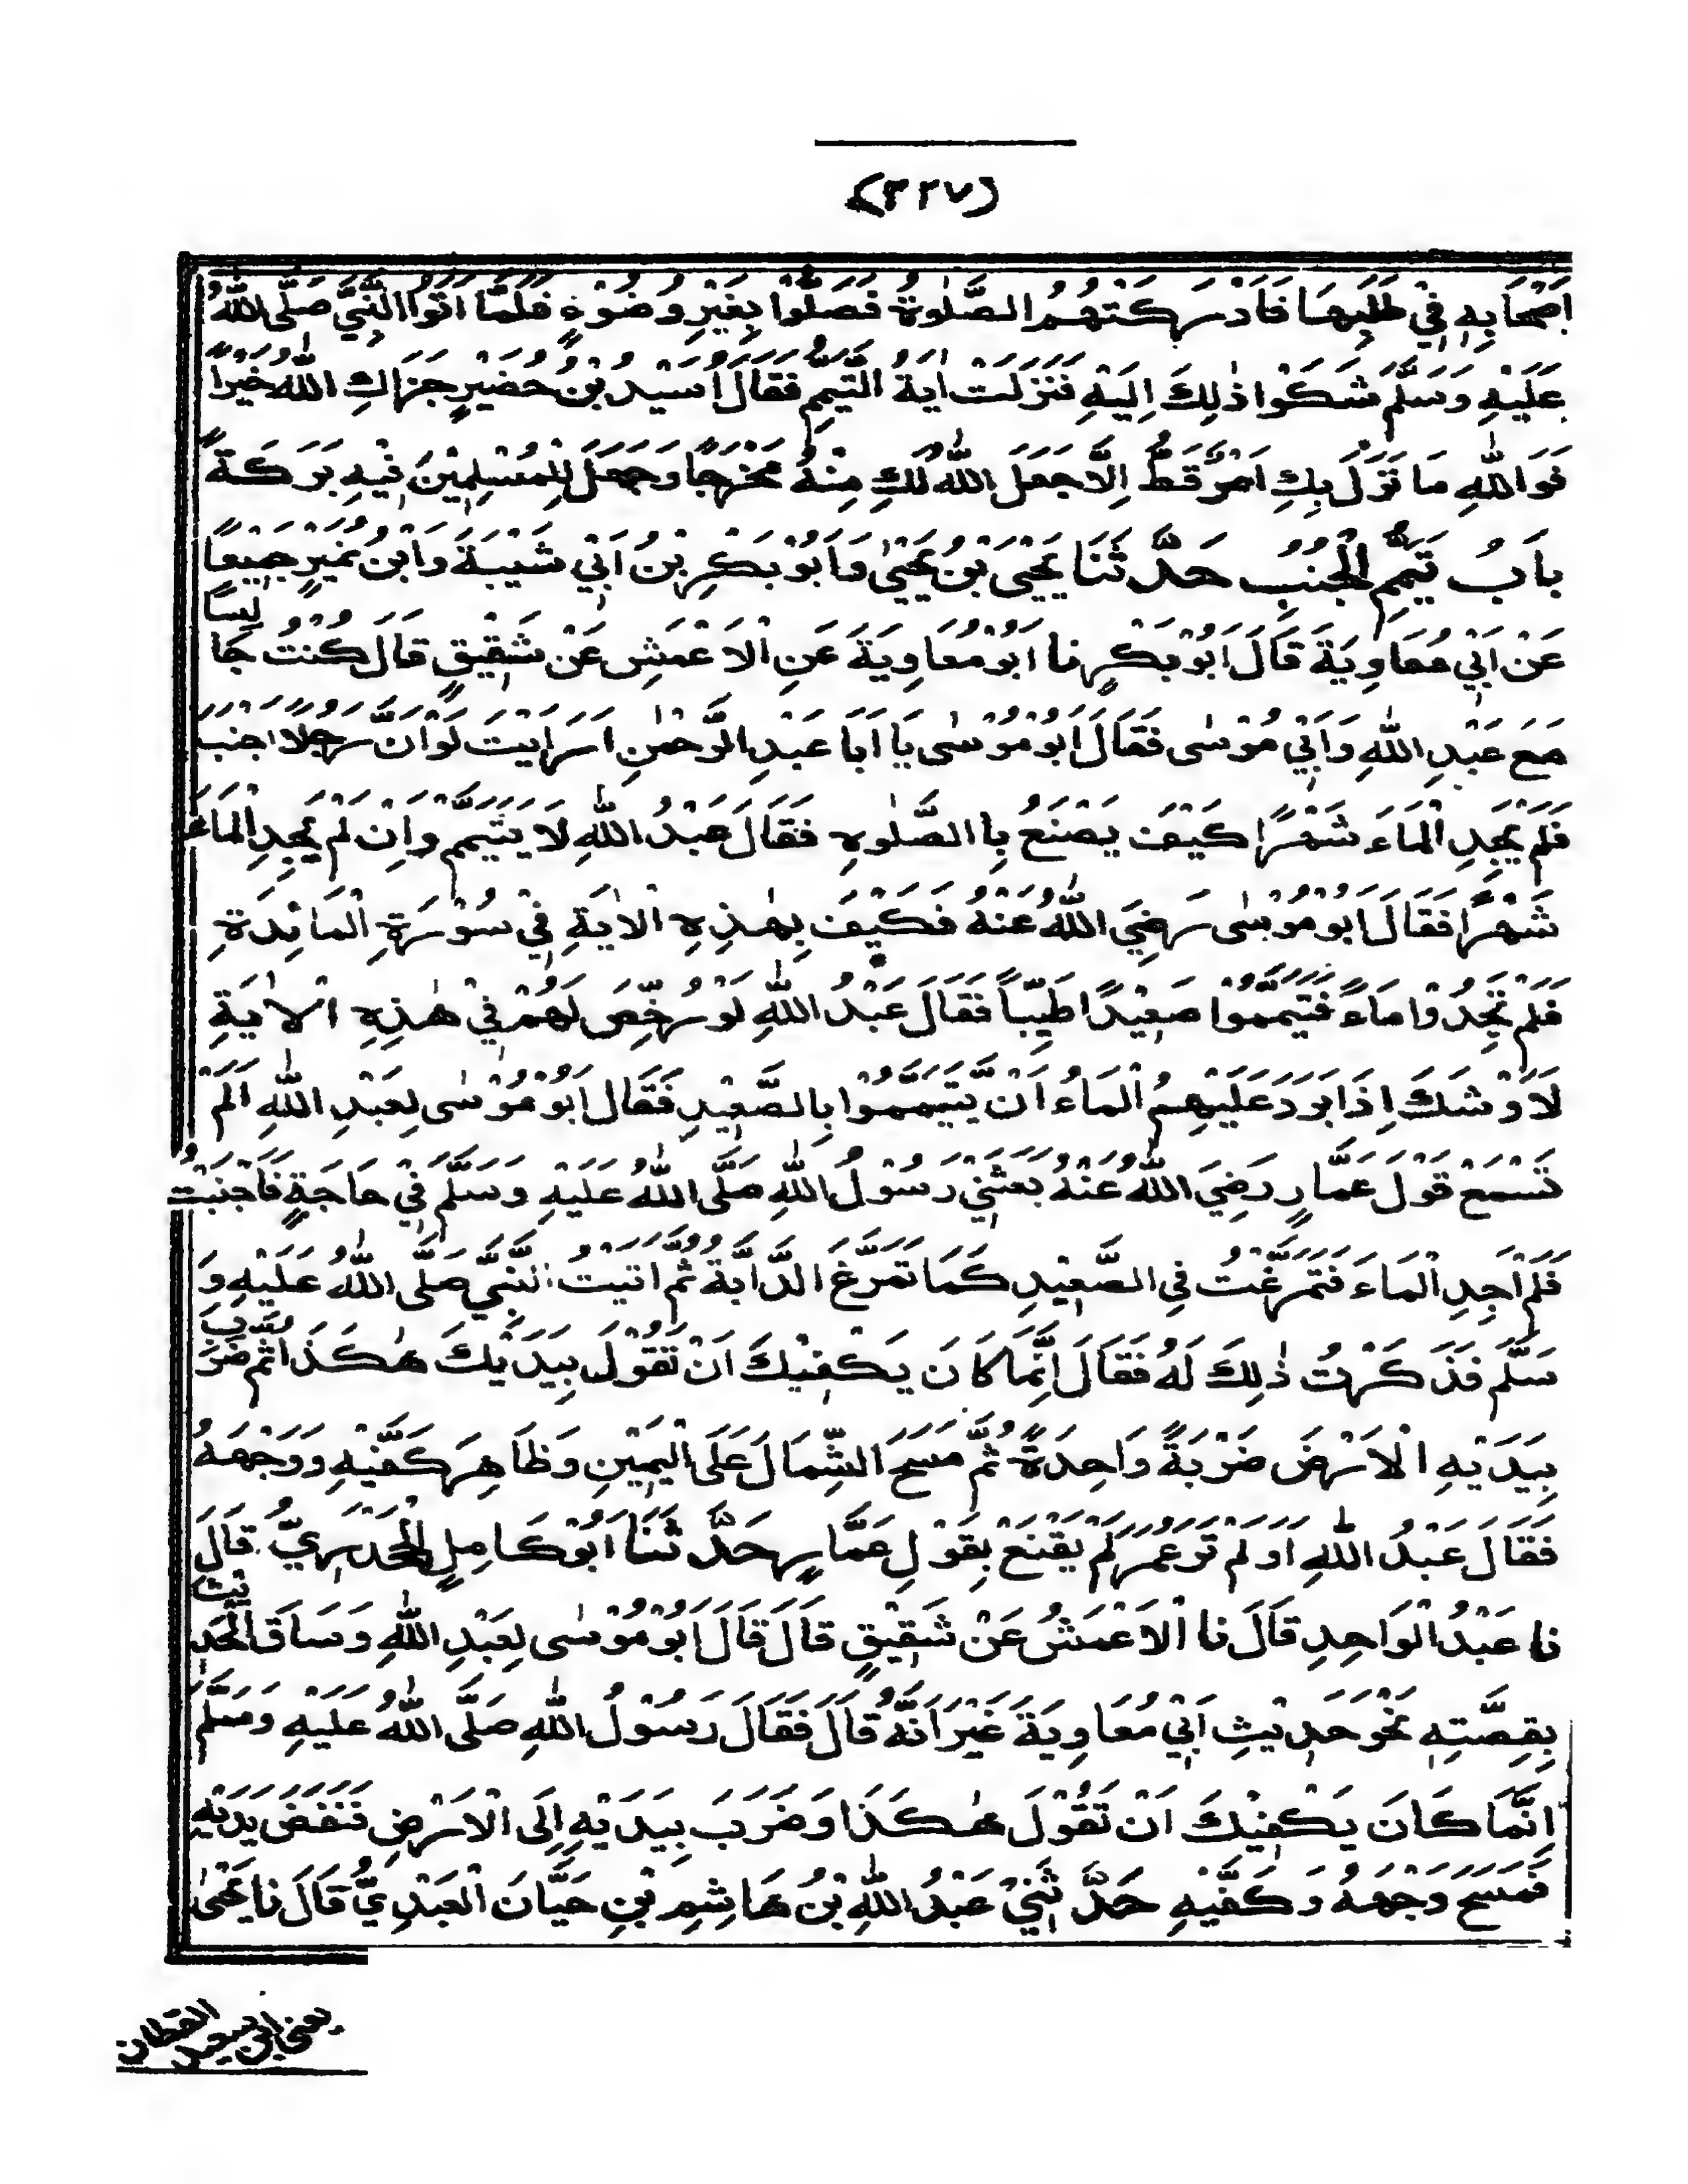 (٣٢٧)
اَصْحَابِهٖ فِيْ طَلَبِهَا فَاَدْرَكَتْهُمُ الصَّلٰوةُ فَصَلَّوْا بِغَيْرِ وُضُوْءٍ فَلَمَّا اَتَوُا النَّبِيَّ صَلَّى اللّٰهُ
عَلَيْهِ وَسَلَّمَ شَكَوْا ذٰلِكَ اِلَيْهِ فَنَزَلَتْ اٰيَةُ التَّيَمُّمِ فَقَالَ اُسَيْدُ بْنُ حُضَيْرٍ جَزَاكِ اللّٰهُ خَيْرًا
فَوَاللّٰهِ مَا نَزَلَ بِكِ اَمْرٌ قَطُّ اِلَّا جَعَلَ اللّٰهُ لَكِ مِنْهُ مَخْرَجًا وَجَعَلَ لِلْمُسْلِمِيْنَ فِيْهِ بَرَكَةً
بَابُ تَيَمُّمِ الْجُنُبِ حَدَّثَنَا يَحْيَى بْنُ يَحْيٰى وَاَبُوْ بَكْرِ بْنُ اَبِيْ شَيْبَةَ وَابْنُ نُمَيْرٍ جَمِيْعًا
عَنْ اَبِيْ مُعَاوِيَةَ قَالَ اَبُوْ بَكْرٍ نا اَبُوْ مُعَاوِيَةَ عَنِ الْاَعْمَشِ عَنْ شَقِيْقٍ قَالَ كُنْتُ جَالِسًا
مَعَ عَبْدِ اللّٰهِ وَاَبِيْ مُوْسٰى فَقَالَ اَبُوْ مُوْسٰى يَا اَبَا عَبْدِ الرَّحْمٰنِ اَرَاَيْتَ لَوْ اَنَّ رَجُلًا اَجْنَبَ
فَلَمْ يَجِدِ الْمَاءَ شَهْرًا كَيْفَ يَصْنَعُ بِالصَّلٰوةِ فَقَالَ عَبْدُ اللّٰهِ لَا يَتَيَمَّمُ وَاِنْ لَمْ يَجِدِ الْمَاءَ
شَهْرًا فَقَالَ اَبُوْ مُوْسٰى رَضِيَ اللّٰهُ عَنْهُ فَكَيْفَ بِهٰذِهِ الْاٰيَةِ فِيْ سُوْرَةِ الْمَائِدَةِ
فَلَمْ تَجِدُوْا مَاءً فَتَيَمَّمُوْا صَعِيْدًا طَيِّبًا فَقَالَ عَبْدُ اللّٰهِ لَوْ رُخِّصَ لَهُمْ فِيْ هٰذِهِ الْاٰيَةِ
لَاَوْشَكَ اِذَا بَرَدَ عَلَيْهِمُ الْمَاءُ اَنْ يَّتَيَمَّمُوْا بِالصَّعِيْدِ فَقَالَ اَبُوْ مُوْسٰى لِعَبْدِ اللّٰهِ اَلَمْ
تَسْمَعْ قَوْلَ عَمَّارٍ رَضِيَ اللّٰهُ عَنْهُ بَعَثَنِيْ رَسُوْلُ اللّٰهِ صَلَّى اللّٰهُ عَلَيْهِ وَسَلَّمَ فِيْ حَاجَةٍ فَاَجْنَبْتُ
فَلَمْ اَجِدِ الْمَاءَ فَتَمَرَّغْتُ فِي الصَّعِيْدِ كَمَا تَمَرَّغُ الدَّابَّةُ ثُمَّ اَتَيْتُ النَّبِيَّ صَلَّى اللّٰهُ عَلَيْهِ وَ
سَلَّمَ فَذَكَرْتُ ذٰلِكَ لَهُ فَقَالَ اِنَّمَا كَانَ يَكْفِيْكَ اَنْ تَقُوْلَ بِيَدَيْكَ هٰكَذَا ثُمَّ ضَرَبَ
بِيَدَيْهِ الْاَرْضَ ضَرْبَةً وَاحِدَةً ثُمَّ مَسَحَ الشِّمَالَ عَلَى الْيَمِيْنِ وَظَاهِرَ كَفَّيْهِ وَوَجْهَهُ
فَقَالَ عَبْدُ اللّٰهِ اَوَلَمْ تَرَ عُمَرَ لَمْ يَقْنَعْ بِقَوْلِ عَمَّارٍ حَدَّثَنَا اَبُوْ كَامِلٍ الْجَحْدَرِيُّ قَالَ
نا عَبْدُ الْوَاحِدِ قَالَ نا الْاَعْمَشُ عَنْ شَقِيْقٍ قَالَ قَالَ اَبُوْ مُوْسٰى لِعَبْدِ اللّٰهِ وَسَاقَ الْحَدِيْثَ
بِقِصَّتِهٖ نَحْوَ حَدِيْثِ اَبِيْ مُعَاوِيَةَ غَيْرَ اَنَّهُ قَالَ فَقَالَ رَسُوْلُ اللّٰهِ صَلَّى اللّٰهُ عَلَيْهِ وَسَلَّمَ
اِنَّمَا كَانَ يَكْفِيْكَ اَنْ تَقُوْلَ هٰكَذَا وَضَرَبَ بِيَدَيْهِ اِلَى الْاَرْضِ فَنَفَضَ يَدَيْهِ
فَمَسَحَ وَجْهَهُ وَكَفَّيْهِ حَدَّثَنِيْ عَبْدُ اللّٰهِ بْنُ هَاشِمِ بْنِ حَيَّانَ الْعَبْدِيُّ قَالَ نا يَحْيٰى
يعني ابن سعيد القطان